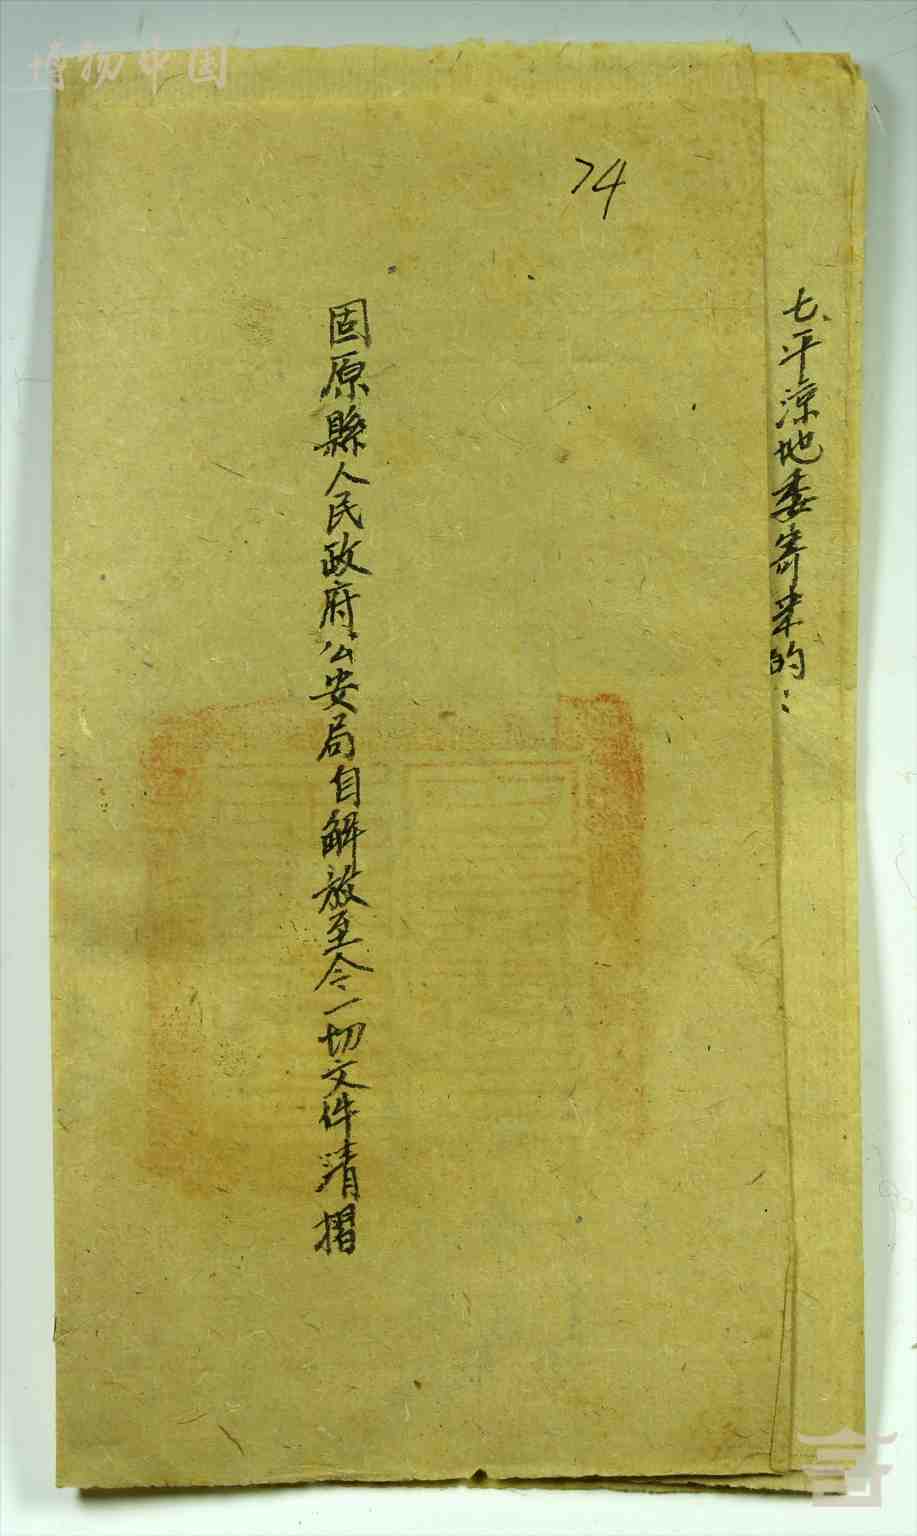 博物中国
74
七、平涼地委寄来的：
固原縣人民政府公安局自解放至今一切文件清摺